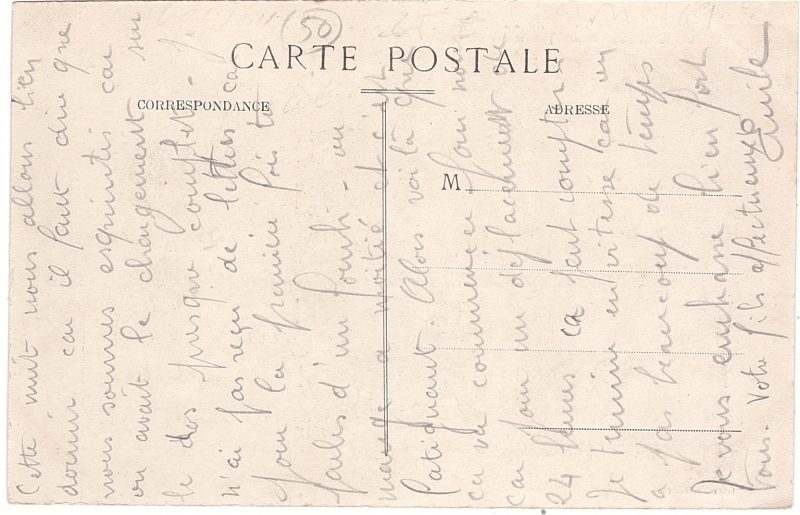 50
CARTE POSTALE
CORRESPONDANCE
ADRESSE
M
Cette nuit nous allons bien
dormir car il faut dire que
nous sommes esquintés car
on avait le chargement sur
le dos presque complet.
n'ai pas reçu de lettres ca
Pour la première fois tu
parles d'un fourbi - on
mange a moitié et c'est
fatiguant. Alors voilà que
ça va commencer pour
car pour un déplacement
24 heures ca peut compter
Je termine en vitesse car on
a pas beaucoup de temps
Je vous embrasse bien fort
tous. Votre fils affectueux
Emile